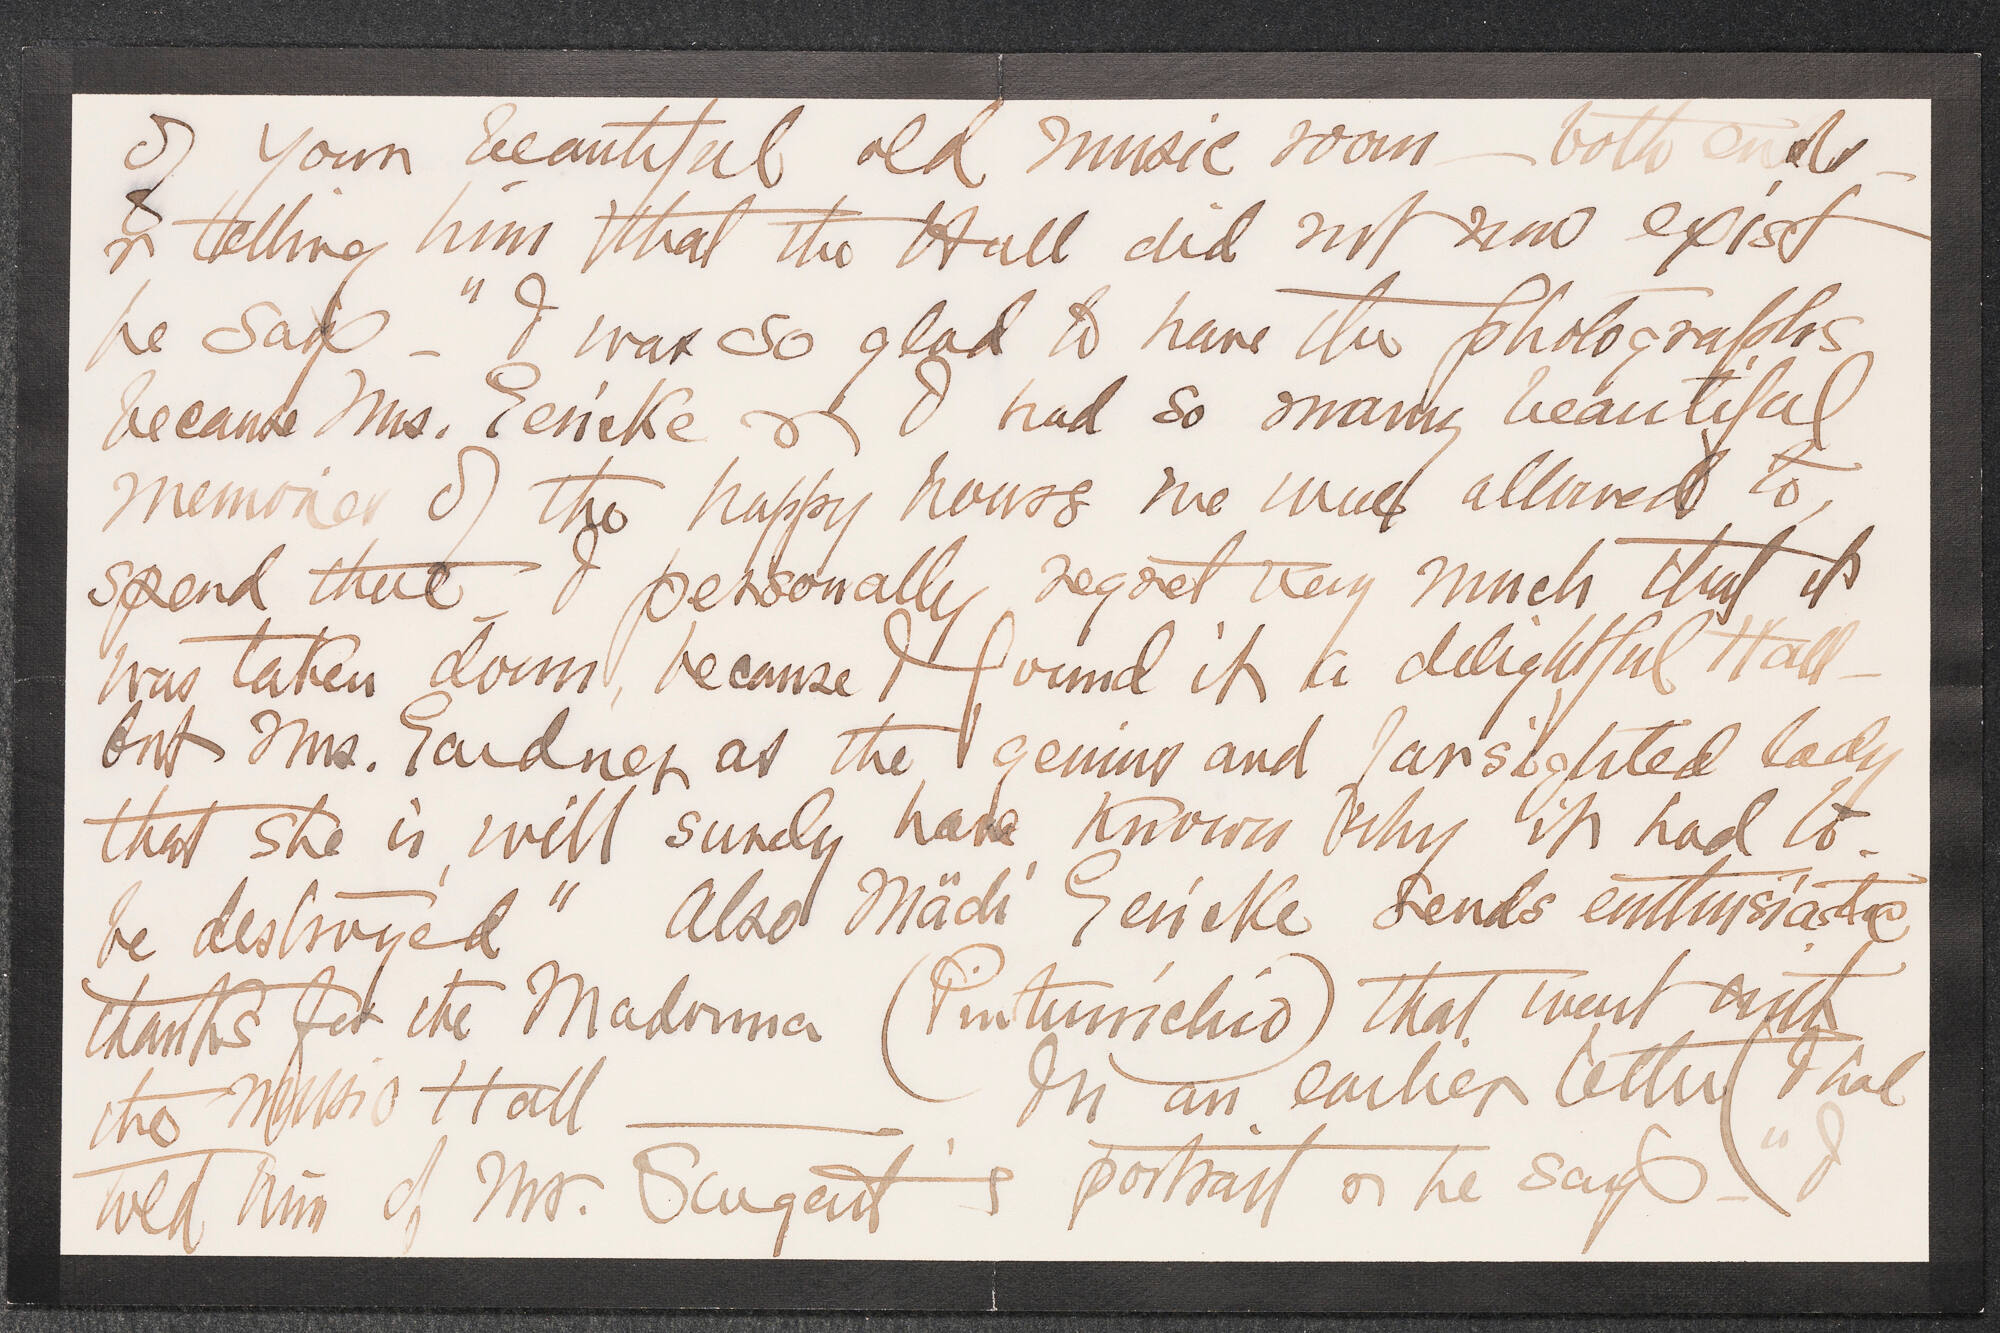 of your beautiful old music room — both ends —
& telling him that the Hall did not now exist
he says — "I was so glad to have the photographs
because Mrs. Gericke & I had so many beautiful
memories of the happy hours we were allowed to
spend there — I personally regret very much that it
was taken down, because I found it a delightful Hall —
but Mrs. Gardner as the genius and farsighted lady
that she is, will surely have known why it had to
be destroyed" Also Mädi Gericke sends enthusiastic
thanks for the Madonna (Pinturrichio) that went with
the Music Hall — In an earlier letter (I had
told him of Mr. Sargent's portrait & he says — "I